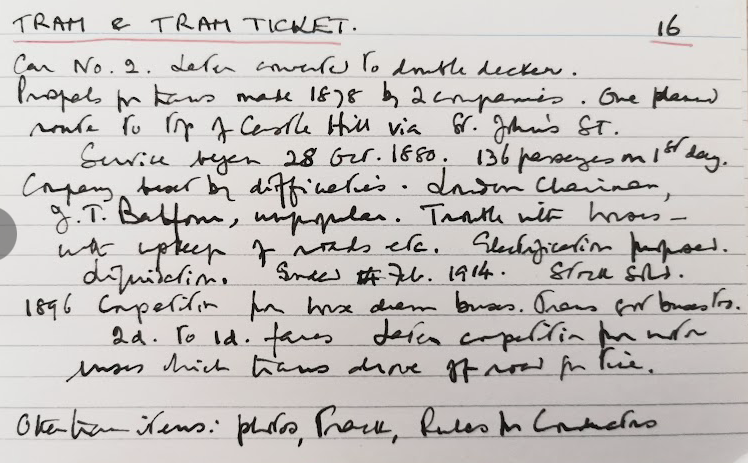 TRAM & TRAM TICKET. 16
Car No. 2. Later converted to double decker.
Proposals for trams made 1878 by 2 companies. One planned
route to top of Castle Hill via St. John's ST.
Service began 28 Oct. 1880. 136 passengers on 1st day.
Company beset by difficulties. London Chairman,
J.T. Balfour, unpopular. Trouble with horses -
with upkeep of roads etc. Electrification proposed.
Ended Feb. 1914. Stock sold.
1896 Competition from horse drawn buses. Trams cut
2d. to 1d. fares Later competition from motor
buses which trams drove off road for time.
Other tram items: photos, Track, Rules for Conductors